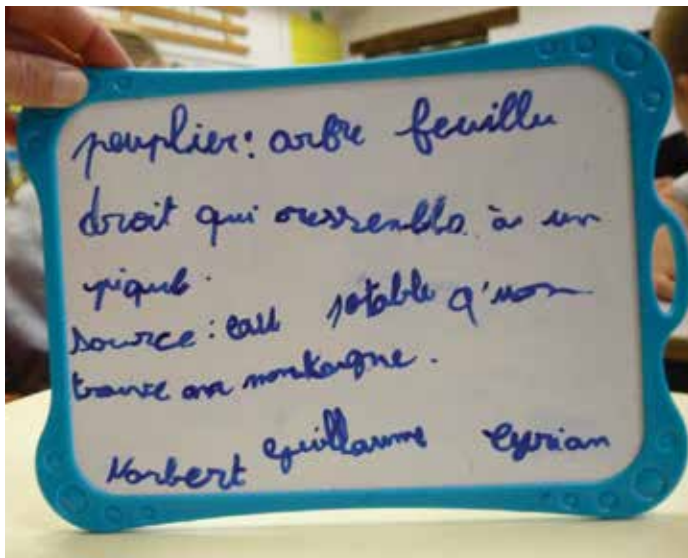 peuplier: arbre feuillu
droit qui ressemble à un
pique.
source: eau potable q'uon
trouve en montagne.
Norbert Guillaume Cyprian